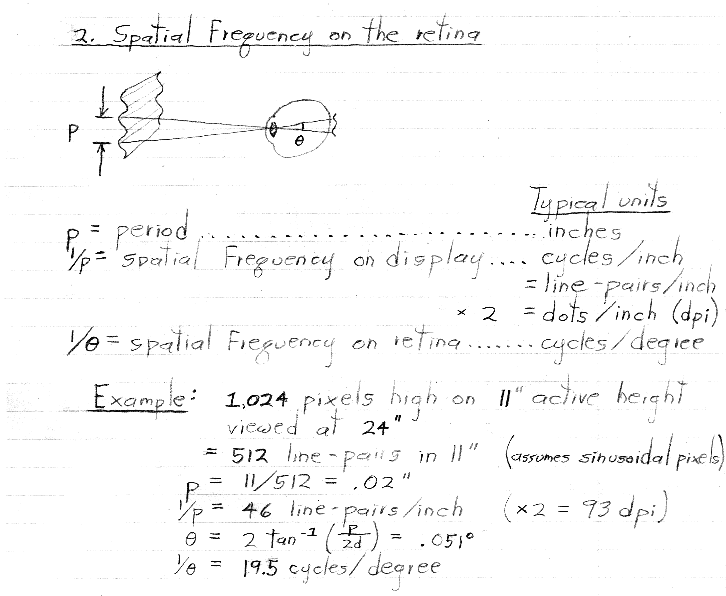 2. Spatial Frequency on the retina
P
θ
Typical units
p = period ........................... inches
1/p = spatial Frequency on display .... cycles/inch
= line-pairs/inch
× 2 = dots/inch (dpi)
1/θ = spatial Frequency on retina ....... cycles/degree
Example: 1,024 pixels high on 11" active height
viewed at 24"
= 512 line-pairs in 11" (assumes sinusoidal pixels)
p = 11/512 = .02"
1/p = 46 line-pairs/inch (×2 = 93 dpi)
θ = 2 tan⁻¹ (p/2d) = .051°
1/θ = 19.5 cycles/degree